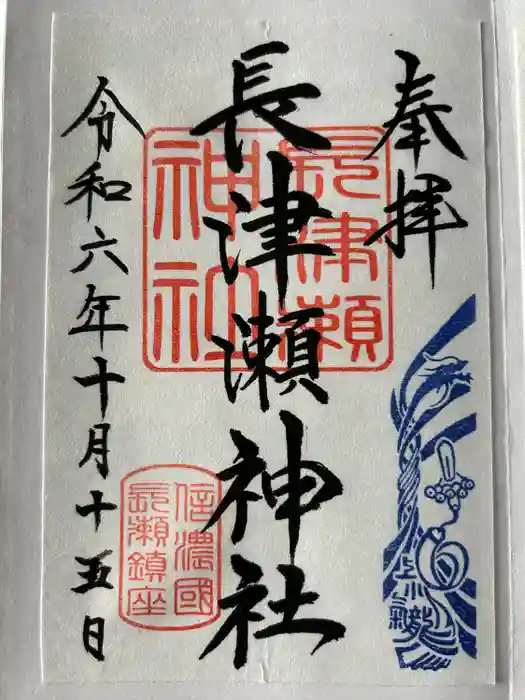 奉拝
長津瀬神社
令和六年十月十五日
長津瀬
神社
信濃國
長瀬鎮座
上小
龍